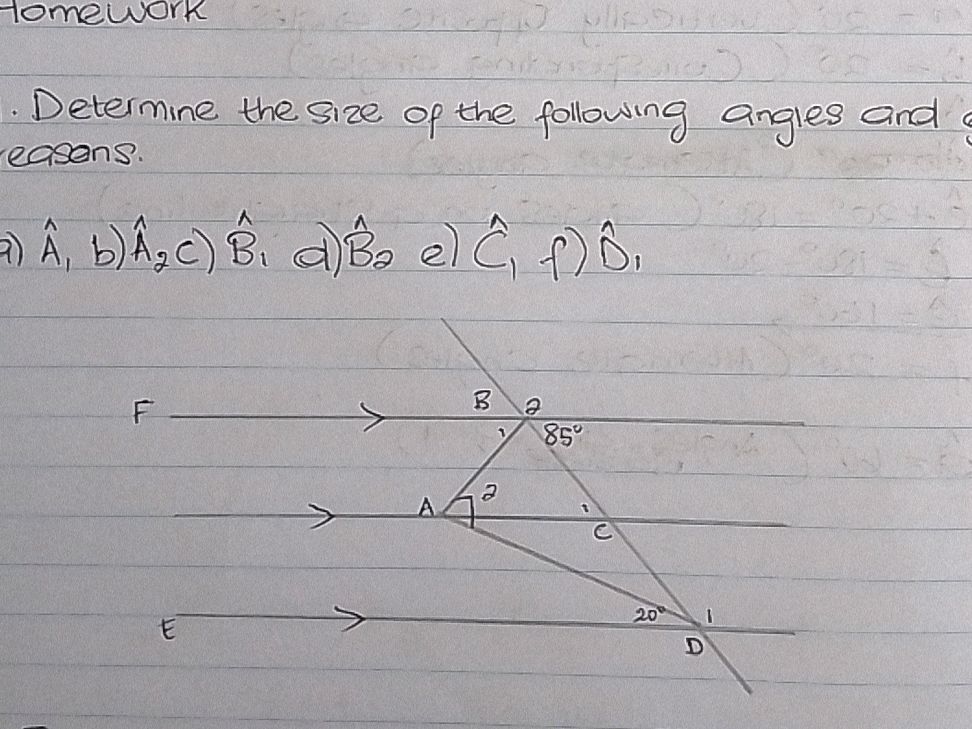 Homework
1. Determine the size of the following angles and
reasons.
a) Â₁ b) Â₂ c) B̂₁ d) B̂₂ e) Ĉ₁ f) D̂₁
F B 2
1 85°
A 2 1
C
E 20° 1
D